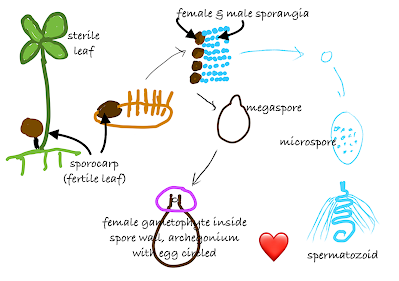 female & male sporangia
sterile
leaf
megaspore
microspore
sporocarp
(fertile leaf)
female gametophyte inside
spore wall, archegonium
with egg circled
spermatozoid